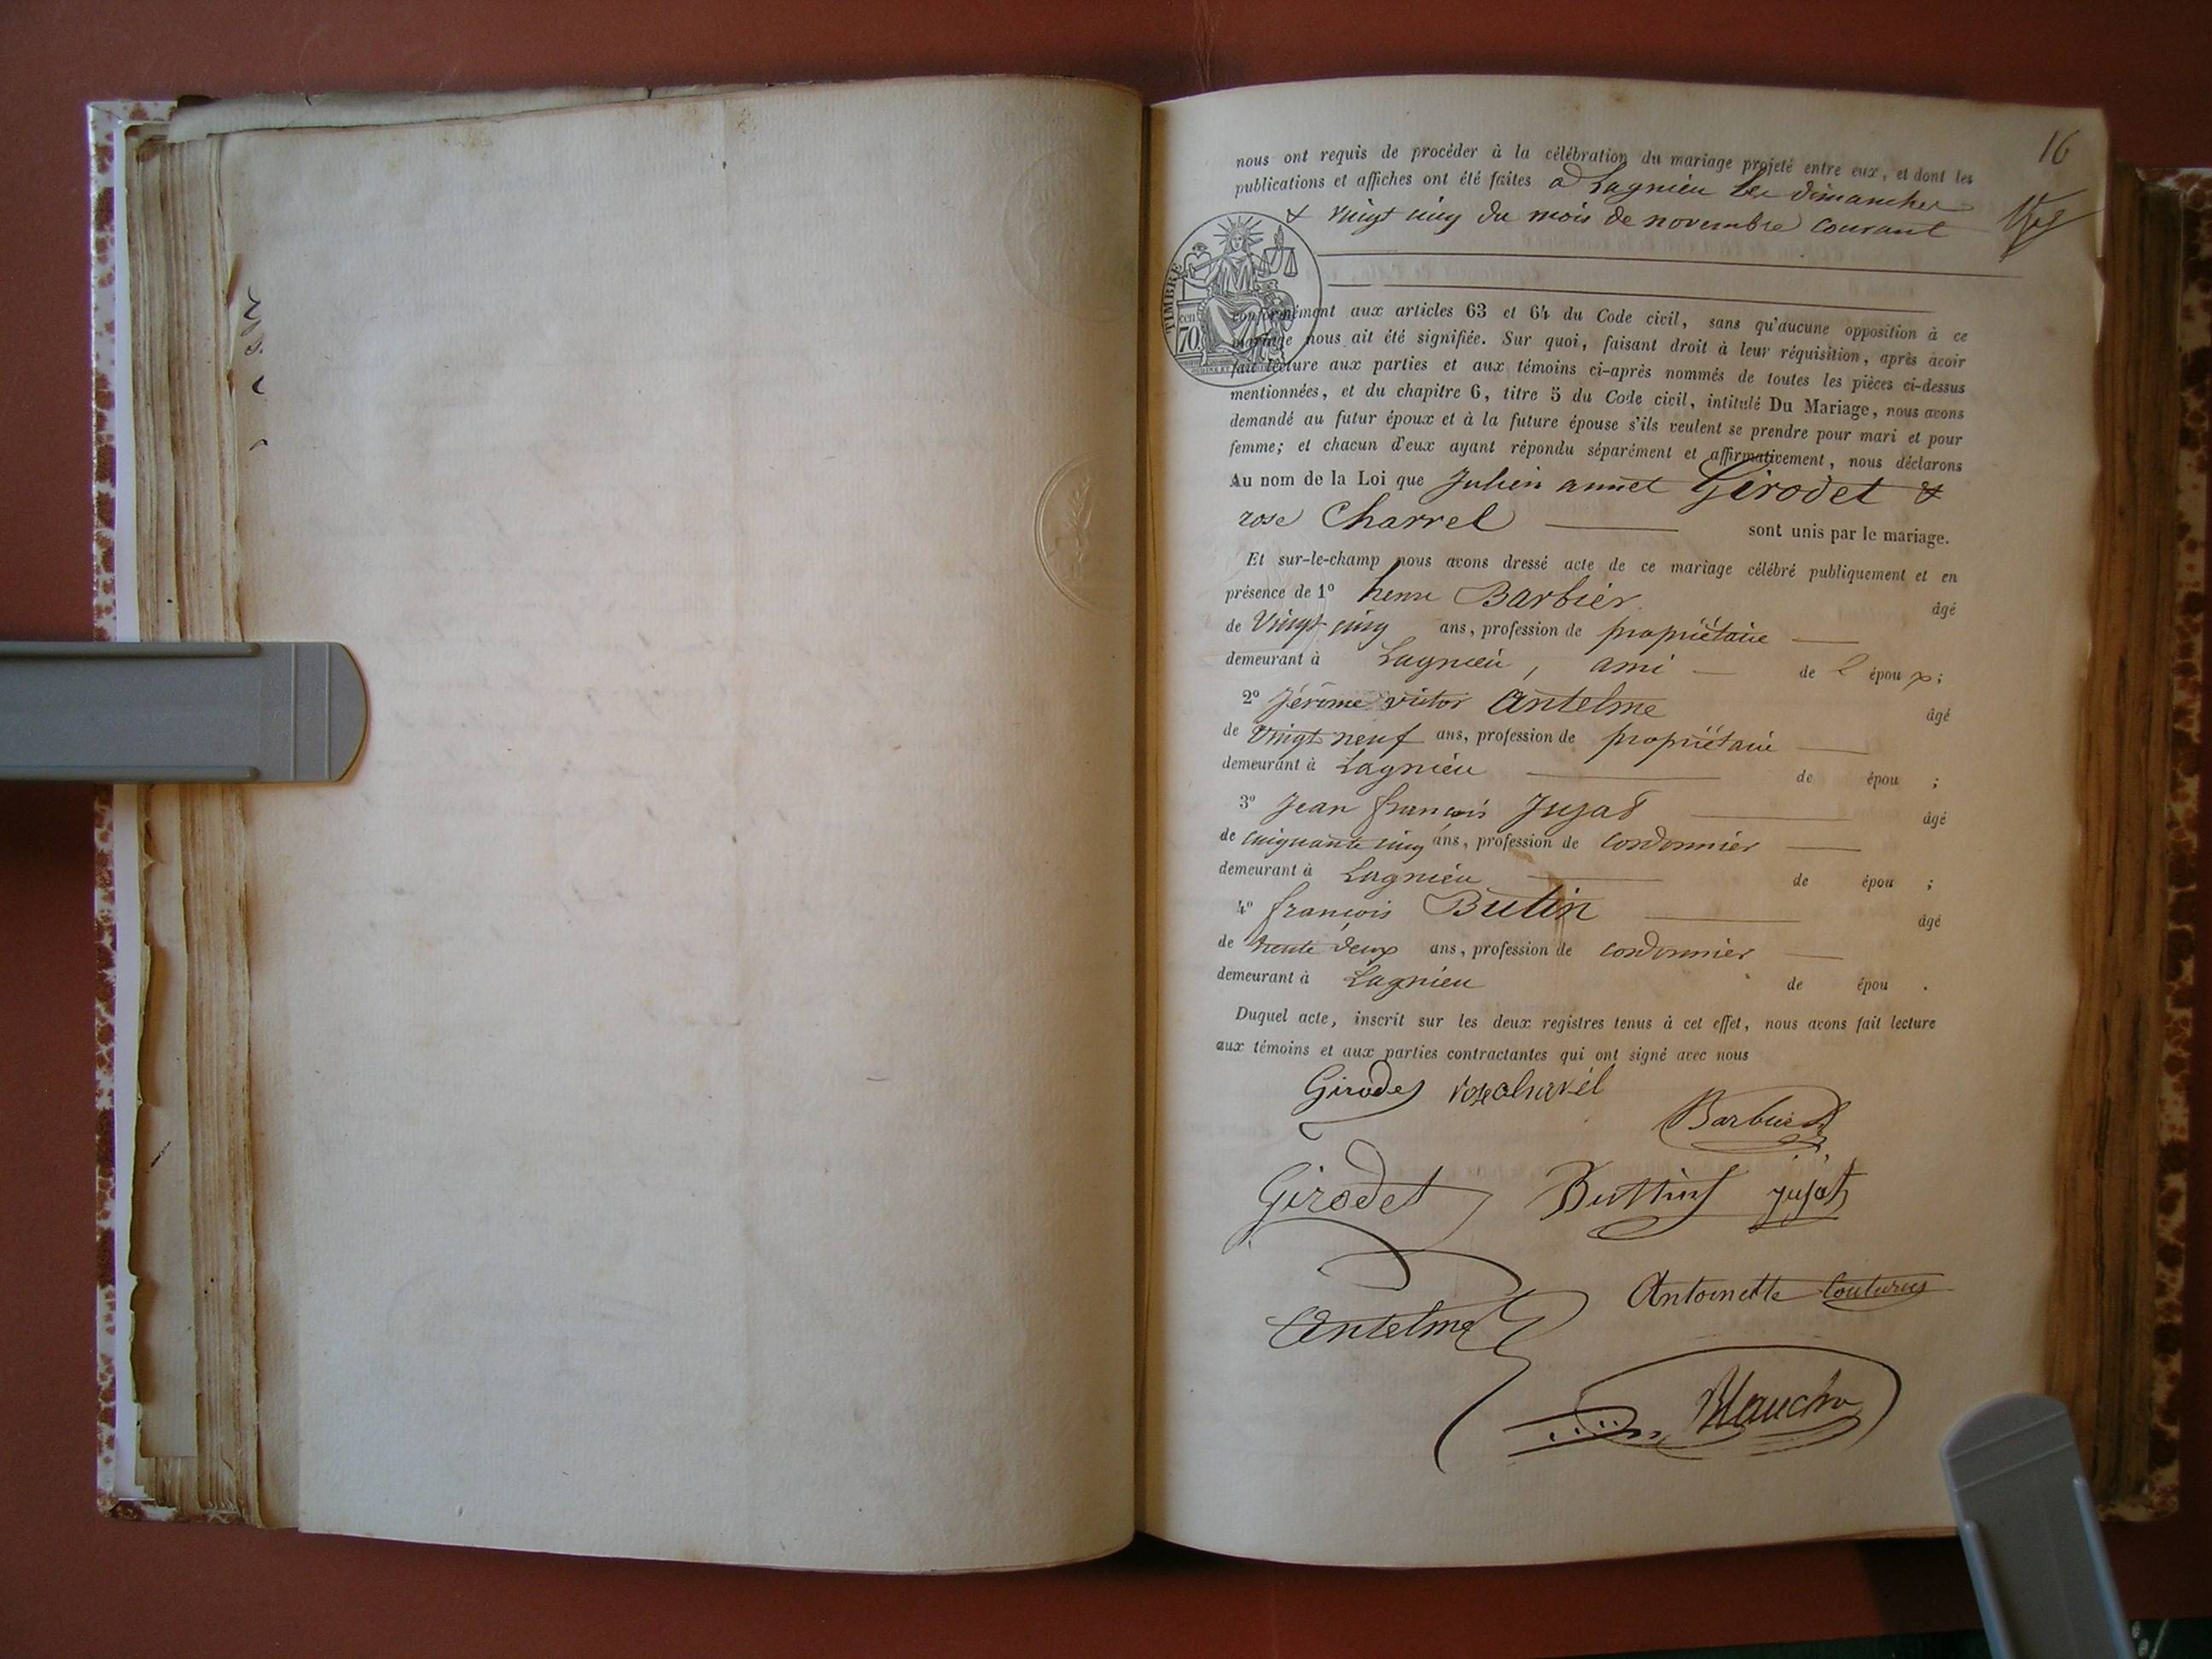 16
nous ont requis de procéder à la célébration du mariage projeté entre eux, et dont les
publications et affiches ont été faites à Lagnieu les dimanches
& vingt cinq du mois de novembre courant
TIMBRE
cen
70
conformément aux articles 63 et 64 du Code civil, sans qu'aucune opposition à ce
mariage nous ait été signifiée. Sur quoi, faisant droit à leur réquisition, après avoir
fait lecture aux parties et aux témoins ci-après nommés de toutes les pièces ci-dessus
mentionnées, et du chapitre 6, titre 5 du Code civil, intitulé Du Mariage, nous avons
demandé au futur époux et à la future épouse s'ils veulent se prendre pour mari et pour
femme; et chacun d'eux ayant répondu séparément et affirmativement, nous déclarons
Au nom de la Loi que Julien annet Girodet &
rose Charrel sont unis par le mariage.
Et sur-le-champ nous avons dressé acte de ce mariage célébré publiquement et en
présence de 1° henri Barbier âgé
de Vingt cinq ans, profession de propriétaire
demeurant à Lagnieu, ami de l époux;
2° Jérôme victor Antelme âgé
de Vingt neuf ans, profession de propriétaire
demeurant à Lagnieu de épou ;
3° Jean françois Jujat âgé
de cinquante cinq ans, profession de cordonnier
demeurant à Lagnieu de épou ;
4° françois Butin âgé
de trente deux ans, profession de cordonnier
demeurant à Lagnieu de épou .
Duquel acte, inscrit sur les deux registres tenus à cet effet, nous avons fait lecture
aux témoins et aux parties contractantes qui ont signé avec nous
Girodet rose charrel
Barbier
Girodet Buttin jujat
Antelme Antoinette